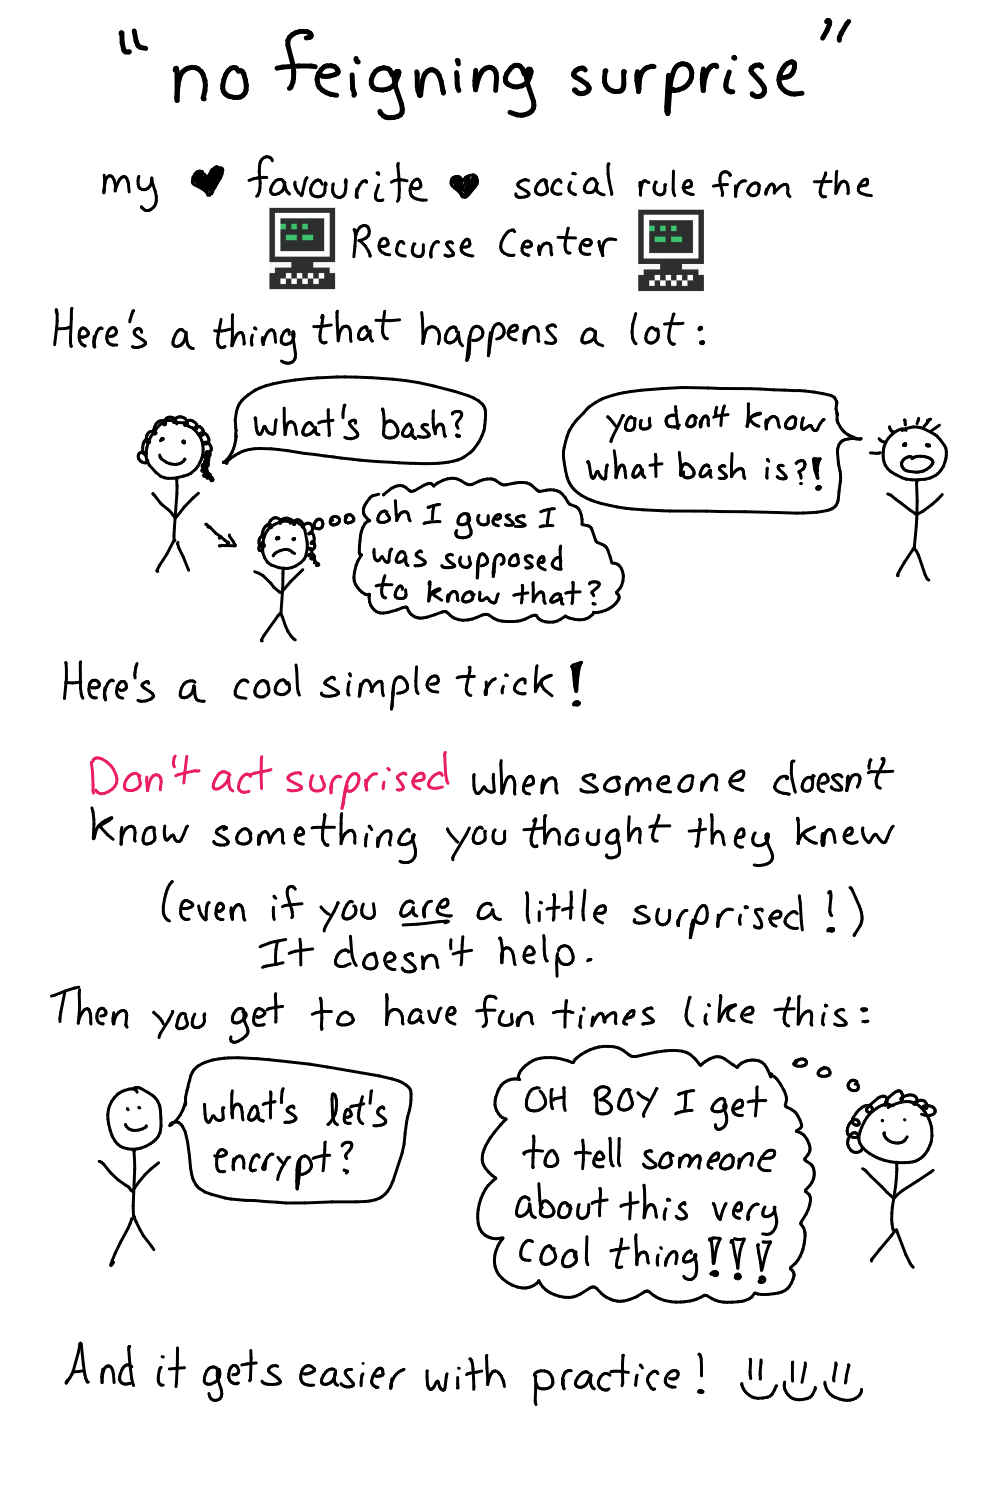 "no feigning surprise"
my ♥ favourite ♥ social rule from the
Recurse Center
Here's a thing that happens a lot:
what's bash?
you don't know
what bash is?!
oh I guess I
was supposed
to know that?
Here's a cool simple trick!
Don't act surprised when someone doesn't
know something you thought they knew
(even if you are a little surprised!)
It doesn't help.
Then you get to have fun times like this:
what's let's
encrypt?
OH BOY I get
to tell someone
about this very
cool thing!!!
And it gets easier with practice!